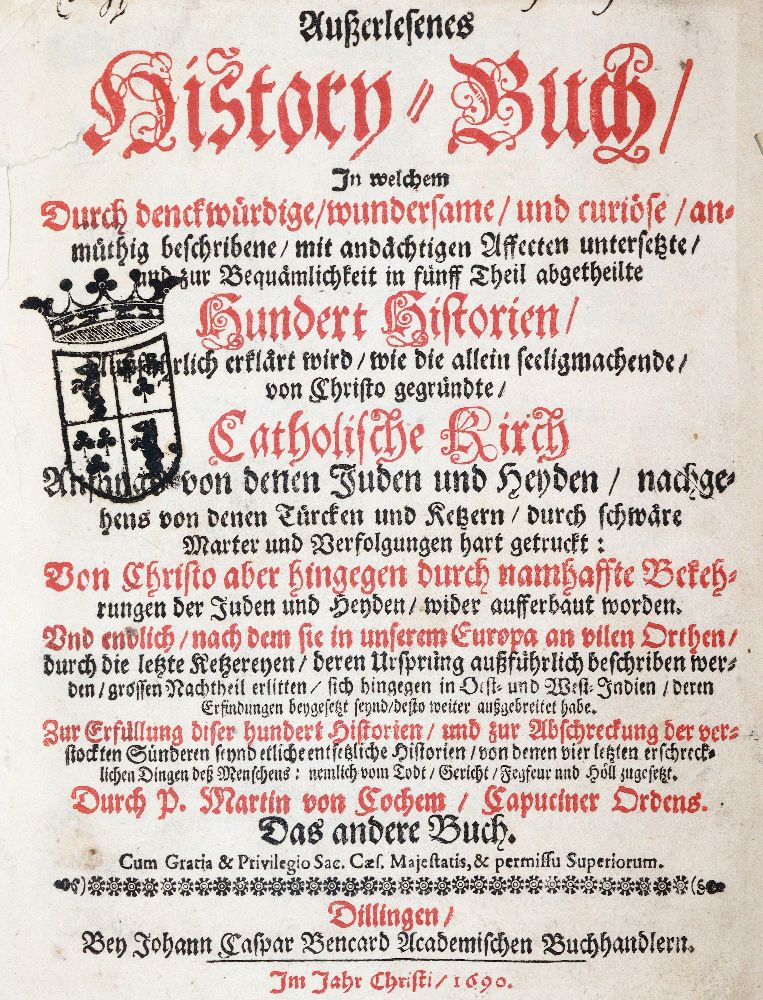 Außerlesenes
History-Buch/
In welchem
Durch denckwürdige/wundersame/ und curiöse /an-
müthig beschribene/ mit andächtigen Affecten untersetzte/
und zur Bequämlichkeit in fünff Theil abgetheilte
Hundert Historien/
Außführlich erklärt wird/ wie die allein seeligmachende/
von Christo gegründte/
Catholische Kirch
Anfangs von denen Juden und Heyden/ nachge-
hens von denen Türcken und Ketzern/ durch schwäre
Marter und Verfolgungen hart getruckt:
Von Christo aber hingegen durch namhaffte Bekeh-
rungen der Juden und Heyden/ wider aufferbaut worden.
Vnd endlich/nach dem sie in unserem Europa an vilen Orthen/
durch die letzte Ketzereyen/ deren Ursprung außführlich beschriben wer-
den/ grossen Nachtheil erlitten/ sich hingegen in Oest- und West-Indien/ deren
Erfindungen beygesetzt seynd/desto weiter außgebreitet habe.
Zur Erfüllung diser hundert Historien/ und zur Abschreckung der ver-
stockten Sünderen seynd etliche entsetzliche Historien/ von denen vier letzten erschreck-
lichen Dingen deß Menschens: nemlich vom Todt/ Gericht/ Fegfeur und Höll zugesetzt.
Durch P. Martin von Cochem/ Capuciner Ordens.
Das andere Buch.
Cum Gratia & Privilegio Sac. Cæs. Majestatis, & permissu Superiorum.
Dillingen/
Bey Johann Caspar Bencard Academischen Buchhandlern.
Im Jahr Christi/ 1690.